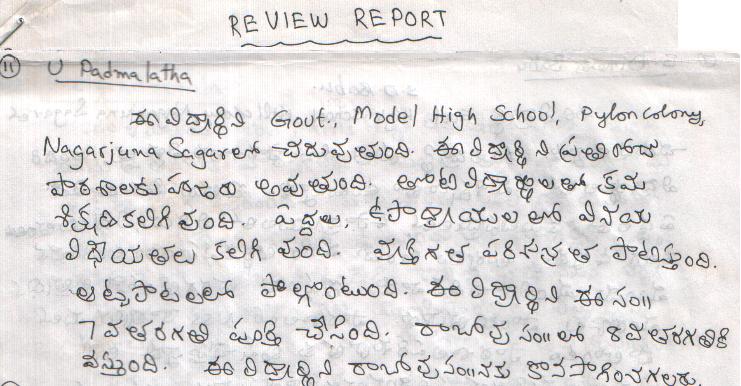 REVIEW REPORT
11 U Padmalatha
ఈ విద్యార్థిని Govt., Model High School, Pylon colony,
Nagarjuna Sagarలో చదువుతుంది. ఈ విద్యార్థిని ప్రతిరోజు
పాఠశాలకు హాజరు అవుతుంది. తోటి విద్యార్థులలో క్రమ
శిక్షణ కలిగి వుంది. పెద్దలు, ఉపాధ్యాయులలో వినయ
విధేయతలు కలిగి వుంది. వ్యక్తిగత పరిశుభ్రత పాటిస్తుంది.
ఆటపాటలలో పాల్గొంటుంది. ఈ విద్యార్థిని ఈ సం॥
7వ తరగతి పూర్తి చేసింది. రాబోవు సం॥లో 8వ తరగతికి
వస్తుంది. ఈ విద్యార్థిని రాబోవు సం॥నకు కొనసాగించగలరు.